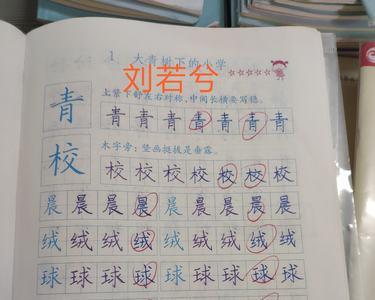 1 大青树下的小学
刘若兮
青
上紧下舒左右对称,中间长横要写稳。
青青青青青青青
校
木字旁:竖画挺拔是垂露。
校校校校校校校
晨晨晨晨晨晨晨晨晨
绒绒绒绒绒绒绒绒绒
球球球球球球球球球